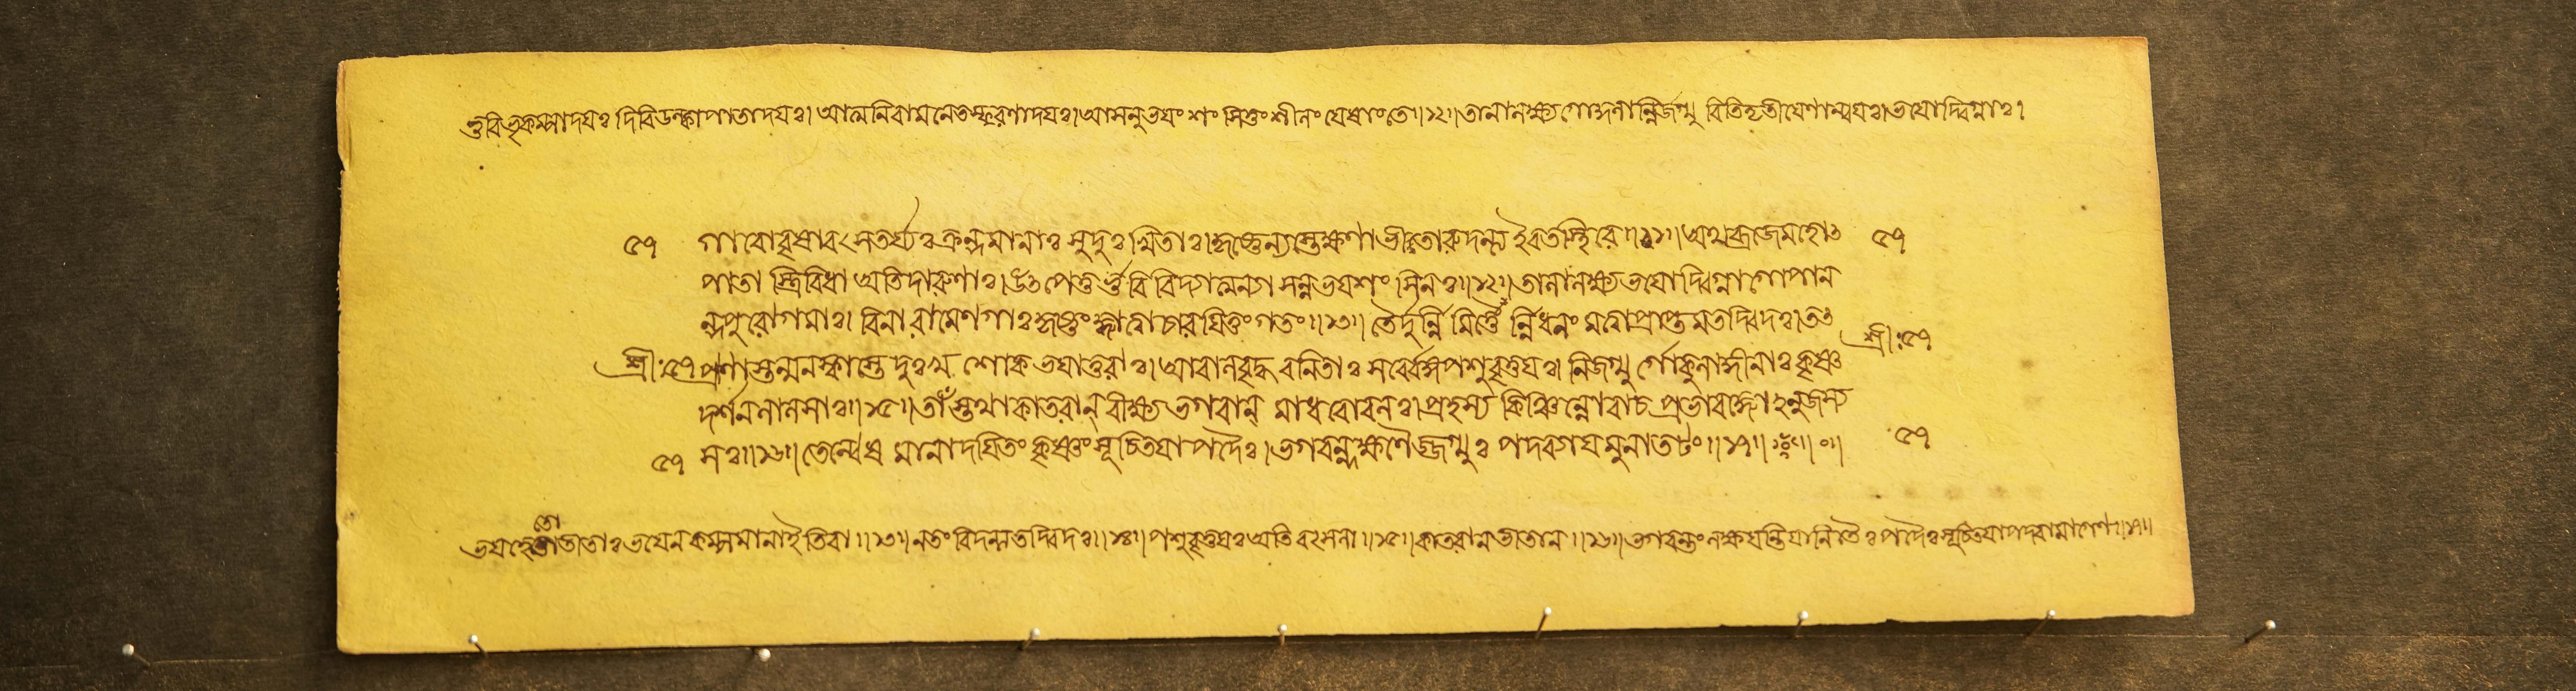 ভুবি ভূকম্পাদয়ঃ দিবি উল্কাপাতাদয়ঃ। আত্মনি বামনেত্রস্ফুরণাদয়ঃ। আসন্নভয়ং শংসিতুং শীলং যেষাং তে॥১২॥ তানালক্ষ্য গোব্রজান্নির্জগ্মু রিতি তৃতীয়েণান্বয়ঃ। ভয়োদ্বিগ্নাঃ।
৫৭ গাবো বৃষা বৎসতর্য্যঃ ক্রন্দমানাঃ সুদুঃখিতাঃ। কৃষ্ণে ন্যস্তেক্ষণা ভীতা রুদন্ত্য ইব তস্থিরে॥১১॥ অথ ব্রজে মহোৎ ৫৭
পাতা স্ত্রিবিধা অতিদারুণাঃ। উৎপেতু র্ভুবি দিব্যাত্মন্যাসন্নভয়শংসিনঃ॥১২॥ তানালক্ষ্য ভয়োদ্বিগ্না গোপা ন
ন্দপুরোগমাঃ। বিনা রামেণ গাঃ কৃষ্ণং জ্ঞাত্বা চারয়িতুং গতং॥১৩॥ তৈর্দুর্ন্নিমিত্তৈ র্ন্নিধনং মত্বা প্রাপ্তমতদ্বিদঃ। তৎ শ্রীঃ ৫৭
শ্রীঃ ৫৭ প্রাণাস্তন্মনস্কাস্তে দুঃখ শোক ভয়াতুরাঃ। আবালবৃদ্ধ বনিতাঃ সর্ব্বেঽঙ্গ পশুবৃত্তয়ঃ। নির্জগ্মু র্গোকুলাদ্দীনাঃ কৃষ্ণ
দর্শনলালসাঃ॥১৫॥ তাঁস্তথা কাতরান্ বীক্ষ্য ভগবান্ মাধবো বলঃ। প্রহস্য কিঞ্চিন্নোবাচ প্রভাবজ্ঞোঽনুজস্য
৫৭ সঃ॥১৬॥ তেন্বেষমানা দয়িতং কৃষ্ণং সূচিতয়া পদৈঃ। ভগবল্লক্ষণৈর্জ্জগ্মুঃ পদব্যা যমুনাতটং॥১৭॥ ৫৭
ভয়হেতো র্ভীতাঃ ভয়েন কম্পমানা ইতি বা॥১৩॥ ন তং বিদন্ত্যতদ্বিদঃ॥১৪॥ পশুবৃত্তয়ঃ অতি বৎসলা॥১৫॥ কাতরান্ ভীতান্॥১৬॥ ভগবন্তং লক্ষয়ন্তি যানি তৈঃ পদৈঃ সূচিতয়া পদব্যা মার্গেণ॥১৭॥